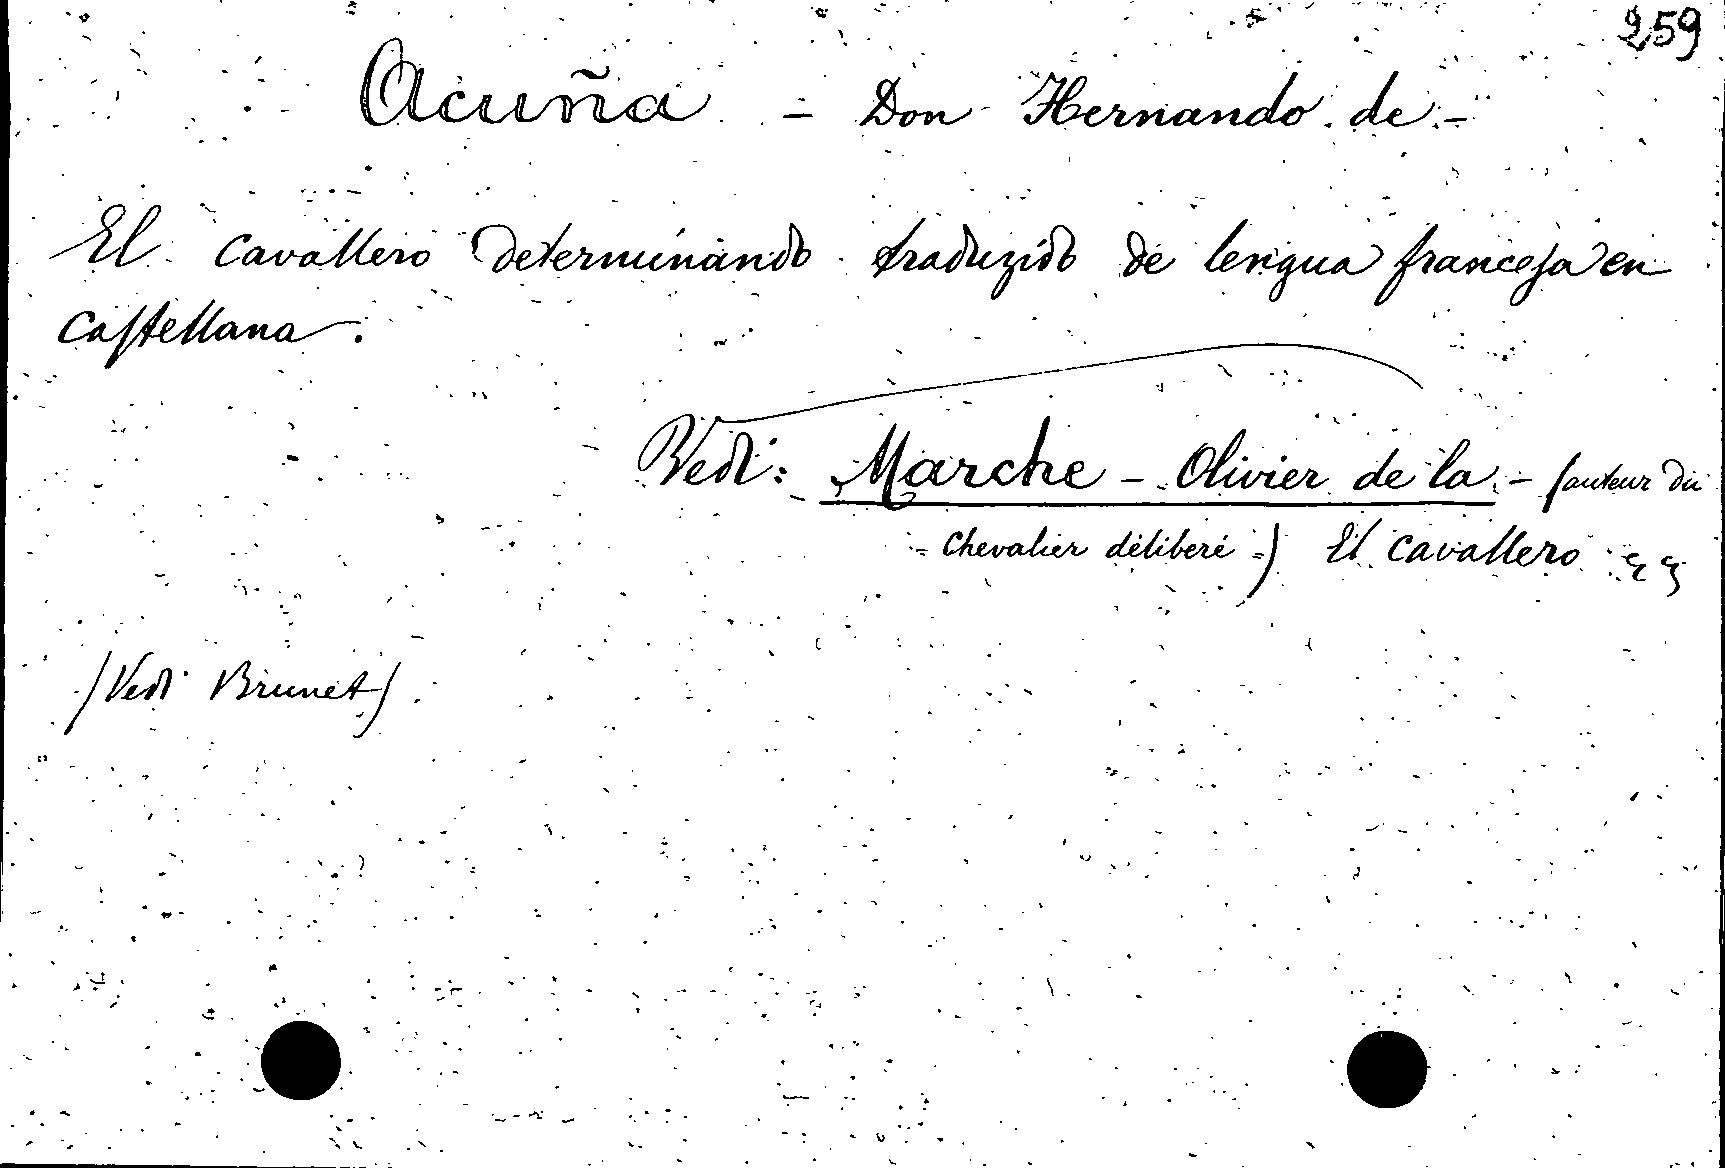 259
Acuña - Don Hernando de -
El cavallero determinando traduzido de lengua francesa en
castellana.
Vedi: Marche - Olivier de la - (auteur du
= Chevalier déliberé =) El cavallero
(Vedi Brunet)